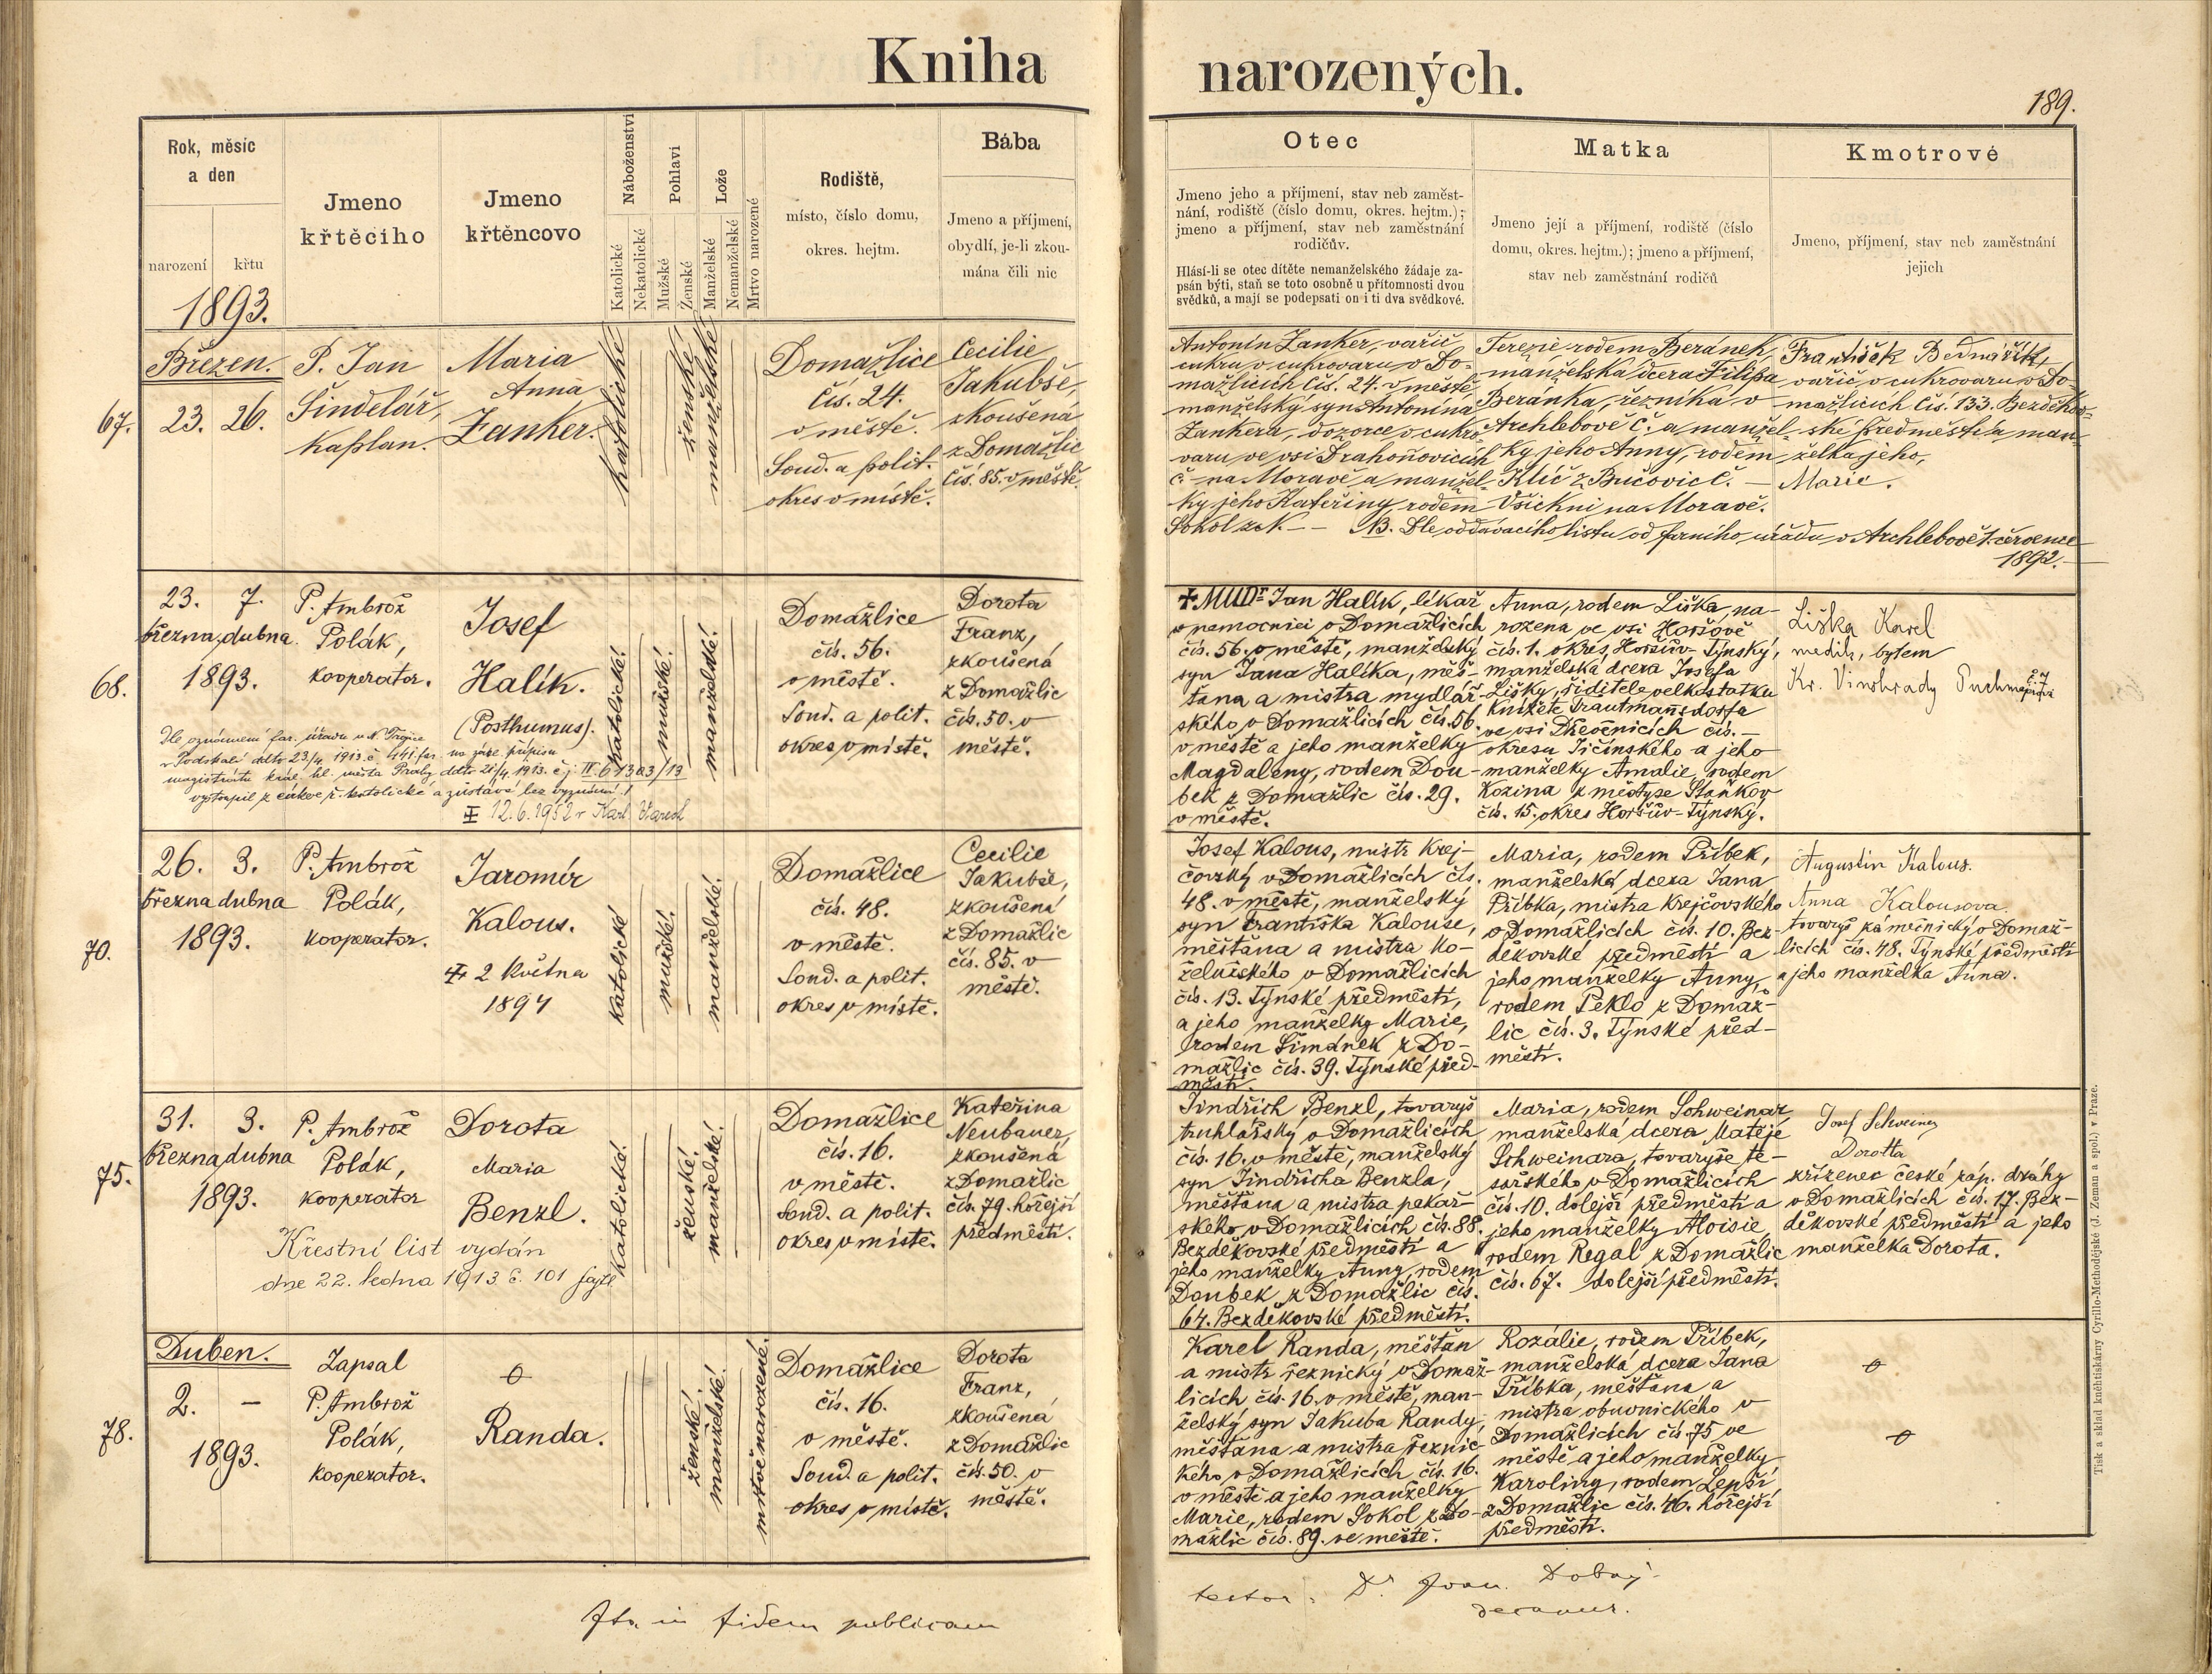 Kniha narozených.
189.
Rok, měsíc
a den
narození křtu
1893.
Jmeno
křtěcího
Jmeno
křtěncovo
Náboženství
Katolické
Nekatolické
Pohlaví
Mužské
Ženské
Lože
Manželské
Nemanželské
Mrtvo narozené
Rodiště,
místo, číslo domu,
okres. hejtm.
Bába
Jmeno a příjmení,
obydlí, je-li zkou-
mána čili nic
Otec
Jmeno jeho a příjmení, stav neb zaměst-
nání, rodiště (číslo domu, okres. hejtm.);
jmeno a příjmení, stav neb zaměstnání
rodičův.
Hlásí-li se otec dítěte nemanželského žádaje za-
psán býti, staň se toto osobně u přítomnosti dvou
svědků, a mají se podepsati on i ti dva svědkové.
Matka
Jmeno její a příjmení, rodiště (číslo
domu, okres. hejtm.); jmeno a příjmení,
stav neb zaměstnání rodičů
Kmotrové
Jmeno, příjmení, stav neb zaměstnání
jejich
67.
Březen.
23. 26.
P. Jan
Šindelář,
Kaplan.
Maria
Anna
Zanker.
katolické
ženské!
manželské
Domažlice
čís. 24.
v městě.
Soud. a polit.
okres v místě.
Cecilie
Jakubše,
zkoušená
z Domažlic
čís. 85. v městě.
Antonín Zanker, vařič
cukru v cukrovaru v Do-
mažlicích čís. 24. v městě,
manželský syn Antonína
Zankera, dozorce v cukro-
varu ve vsi Drahoňovicích
č. – na Moravě a manžel-
ky jeho Kateřiny, rodem
Sokol z K. – –
Terezie rodem Beránek,
manželská dcera Filipa
Beránka, řezníka v
Archlebově č. a manžel-
ky jeho Anny, rodem
Klíč z Bučovic č. –
Všichni na Moravě.
NB. Dle oddávacího listu od farního úřadu v Archlebově 1. července
1892.
František Bednářík,
vařič v cukrovaru v Do-
mažlicích čís. 133. Bezděkov-
ské předměstí a man-
želka jeho,
Marie.
68.
23. 7.
března, dubna
1893.
P. Ambrož
Polák,
kooperator.
Josef
Halík.
(Posthumus).
Dle oznámení far. úřadu u N. Trojice
v Podskalí ddto 23/4 1913. č. 441 far. na zákl. přípisu
magistrátu král. hl. města Prahy ddto 21/4 1913. č. j. IV. 613 a3/13
vystoupil z církve ř. katolické a zůstává bez vyznání!
12.6.1952 v Karl. Varech
katolické!
mužské!
manželské!
Domažlice
čís. 56.
v městě.
Soud. a polit.
okres v místě.
Dorota
Franz,
zkoušená
z Domažlic
čís. 50. v
městě.
✝ MUDr Jan Halík, lékař
v nemocnici v Domažlicích
čís. 56. v městě, manželský
syn Jana Halíka, měš-
ťana a mistra mydlář-
ského v Domažlicích čís. 56.
v městě a jeho manželky
Magdaleny, rodem Dou-
bek z Domažlic čís. 29.
v městě.
Anna, rodem Liška, na-
rozena ve vsi Horšově
čís. 1. okres Horšův-Týnský,
manželská dcera Josefa
Lišky, ředitele velkostatku
Knížete Trautmannsdorfa
ve vsi Dřevěnicích čís. –
okresu Jičínského a jeho
manželky Amalie, rodem
Kozina z městyse Staňkov
čís. 15. okres Horšův-Týnský.
Liška Karel
medik, bytem
Kr. Vinohrady
70.
26. 3.
března dubna
1893.
P. Ambrož
Polák,
kooperator.
Jaromír
Kalous.
✝ 2 května
1894
katolické
mužské!
manželské!
Domažlice
čís. 48.
v městě.
Soud. a polit.
okres v místě.
Cecilie
Jakubše,
zkoušená
z Domažlic
čís. 85. v
městě.
Josef Kalous, mistr krej-
čovský v Domažlicích čís.
48. v městě, manželský
syn Františka Kalouse,
měšťana a mistra ko-
želužského v Domažlicích
čís. 13. Týnské předměstí,
a jeho manželky Marie,
rodem Šimánek z Do-
mažlic čís. 39. Týnské před-
městí.
Maria, rodem Příbek,
manželská dcera Jana
Příbka, mistra krejčovského
v Domažlicích čís. 10. Bez-
děkovské předměstí a
jeho manželky Anny,
rodem Peklo z Domaž-
lic čís. 3. Týnské před-
městí.
Augustin Kalous.
Anna Kalousova.
tovaryš zámečnický v Domaž-
licích čís. 48. Týnské předměstí
a jeho manželka Anna.
75.
31. 3.
března, dubna
1893.
P. Ambrož
Polák,
kooperator
Dorota
Maria
Benzl.
Křestní list vydán
dne 22. ledna 1913 č. 101
katolické!
ženské!
manželské!
Domažlice
čís. 16.
v městě.
Soud. a polit.
okres v místě.
Kateřina
Neubauer,
zkoušená
z Domažlic
čís. 79. hořejší
předměstí.
Jindřich Benzl, tovaryš
truhlářský v Domažlicích
čís. 16. v městě, manželský
syn Jindřicha Benzla,
měšťana a mistra pekař-
ského v Domažlicích čís. 88.
Bezděkovské předměstí a
jeho manželky Anny, rodem
Doubek z Domažlic čís.
64. Bezděkovské předměstí.
Maria, rodem Schweinar
manželská dcera Matěje
Schweinara, tovaryše te-
sařského v Domažlicích
čís. 10. dolejší předměstí a
jeho manželky Aloisie,
rodem Regal z Domažlic
čís. 67. dolejší předměstí.
Josef Schweiner
Dorotta
zřízenec české záp. dráhy
v Domažlicích čís. 17. Bez-
děkovské předměstí a jeho
manželka Dorota.
78.
Duben.
2. –
1893.
Zapsal
P. Ambrož
Polák,
kooperator.
Randa.
ženské!
manželské!
mrtvě narozené.
Domažlice
čís. 16.
v městě.
Soud. a polit.
okres v místě.
Dorota
Franz,
zkoušená
z Domažlic
čís. 50. v
městě.
Karel Randa, měšťan
a mistr řeznický v Domaž-
licích čís. 16. v městě, man-
želský syn Jakuba Randy,
měšťana a mistra řeznic-
kého v Domažlicích čís. 16.
v městě a jeho manželky
Marie, rodem Sokol z Do-
mažlic čís. 89. ve městě.
Rozálie, rodem Příbek,
manželská dcera Jana
Příbka, měšťana a
mistra obuvnického v
Domažlicích čís. 75 ve
městě a jeho manželky
Karoliny, rodem Lepší
z Domažlic čís. 46. hořejší
předměstí.
Ita in fidem publicam
testor: Dr Joan. Dobrý
decanus.
Tisk a sklad kněhtiskárny Cyrillo-Methodějské (J. Zeman a spol.) v Praze.